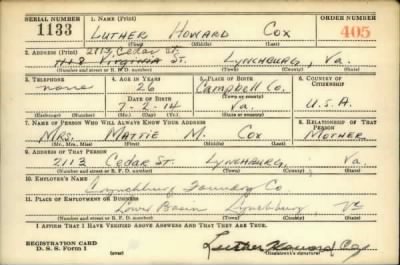 SERIAL NUMBER 1. NAME (Print) ORDER NUMBER
1133 LUTHER HOWARD COX 405
(First) (Middle) (Last)
2. ADDRESS (Print) 2113 Cedar St.
1118 Virginia St. LYNCHBURG, Va.
(Number and street or R. F. D. number) (Town) (County) (State)
3. TELEPHONE 4. AGE IN YEARS 5. PLACE OF BIRTH 6. COUNTRY OF CITIZENSHIP
none 26 Campbell Co.
DATE OF BIRTH (Town or county)
7-2-14 Va. U.S.A.
(Exchange) (No.) (Mo.) (Day) (Yr.) (State or country)
7. NAME OF PERSON WHO WILL ALWAYS KNOW YOUR ADDRESS 8. RELATIONSHIP OF THAT PERSON
MRS. MATTIE M. COX MOTHER
(Mr., Mrs., Miss) (First) (Middle) (Last)
9. ADDRESS OF THAT PERSON
2113 Cedar St. LYNCHBURG, Va.
(Number and street or R. F. D. number) (Town) (County) (State)
10. EMPLOYER'S NAME
Lynchburg Foundry Co
11. PLACE OF EMPLOYMENT OR BUSINESS
Lower Basin Lynchburg, Va
(Number and street or R. F. D. number) (Town) (County) (State)
I AFFIRM THAT I HAVE VERIFIED ABOVE ANSWERS AND THAT THEY ARE TRUE.
REGISTRATION CARD
D. S. S. Form 1 Luther Howard Cox
(Registrant's signature)